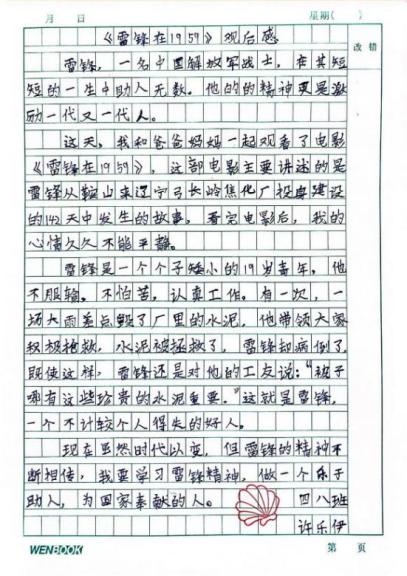 月 日 星期( )
《雷锋在1959》观后感
改错
雷锋，一名中国解放军战士，在其短
短的一生中助人无数。他的的精神更是激
励一代又一代人。
这天，我和爸爸妈妈一起观看了电影
《雷锋在1959》，这部电影主要讲述的是
雷锋从鞍山来辽宁弓长岭焦化厂投身建设
的142天中发生的故事，看完电影后，我的
心情久久不能平静。
雷锋是一个个子矮小的19岁青年，他
不服输，不怕苦，认真工作。有一次，一
场大雨差点毁了厂里的水泥，他带领大家
积极抢救，水泥被拯救了，雷锋却病倒了，
既使这样，雷锋还是对他的工友说："被子
哪有这些珍贵的水泥重要。"这就是雷锋，
一个不计较个人得失的好人。
现在虽然时代以变，但雷锋的精神不
断相传，我要学习雷锋精神，做一个乐于
助人，为国家奉献的人。 四八班
许乐伊
WENBOOK 第 页